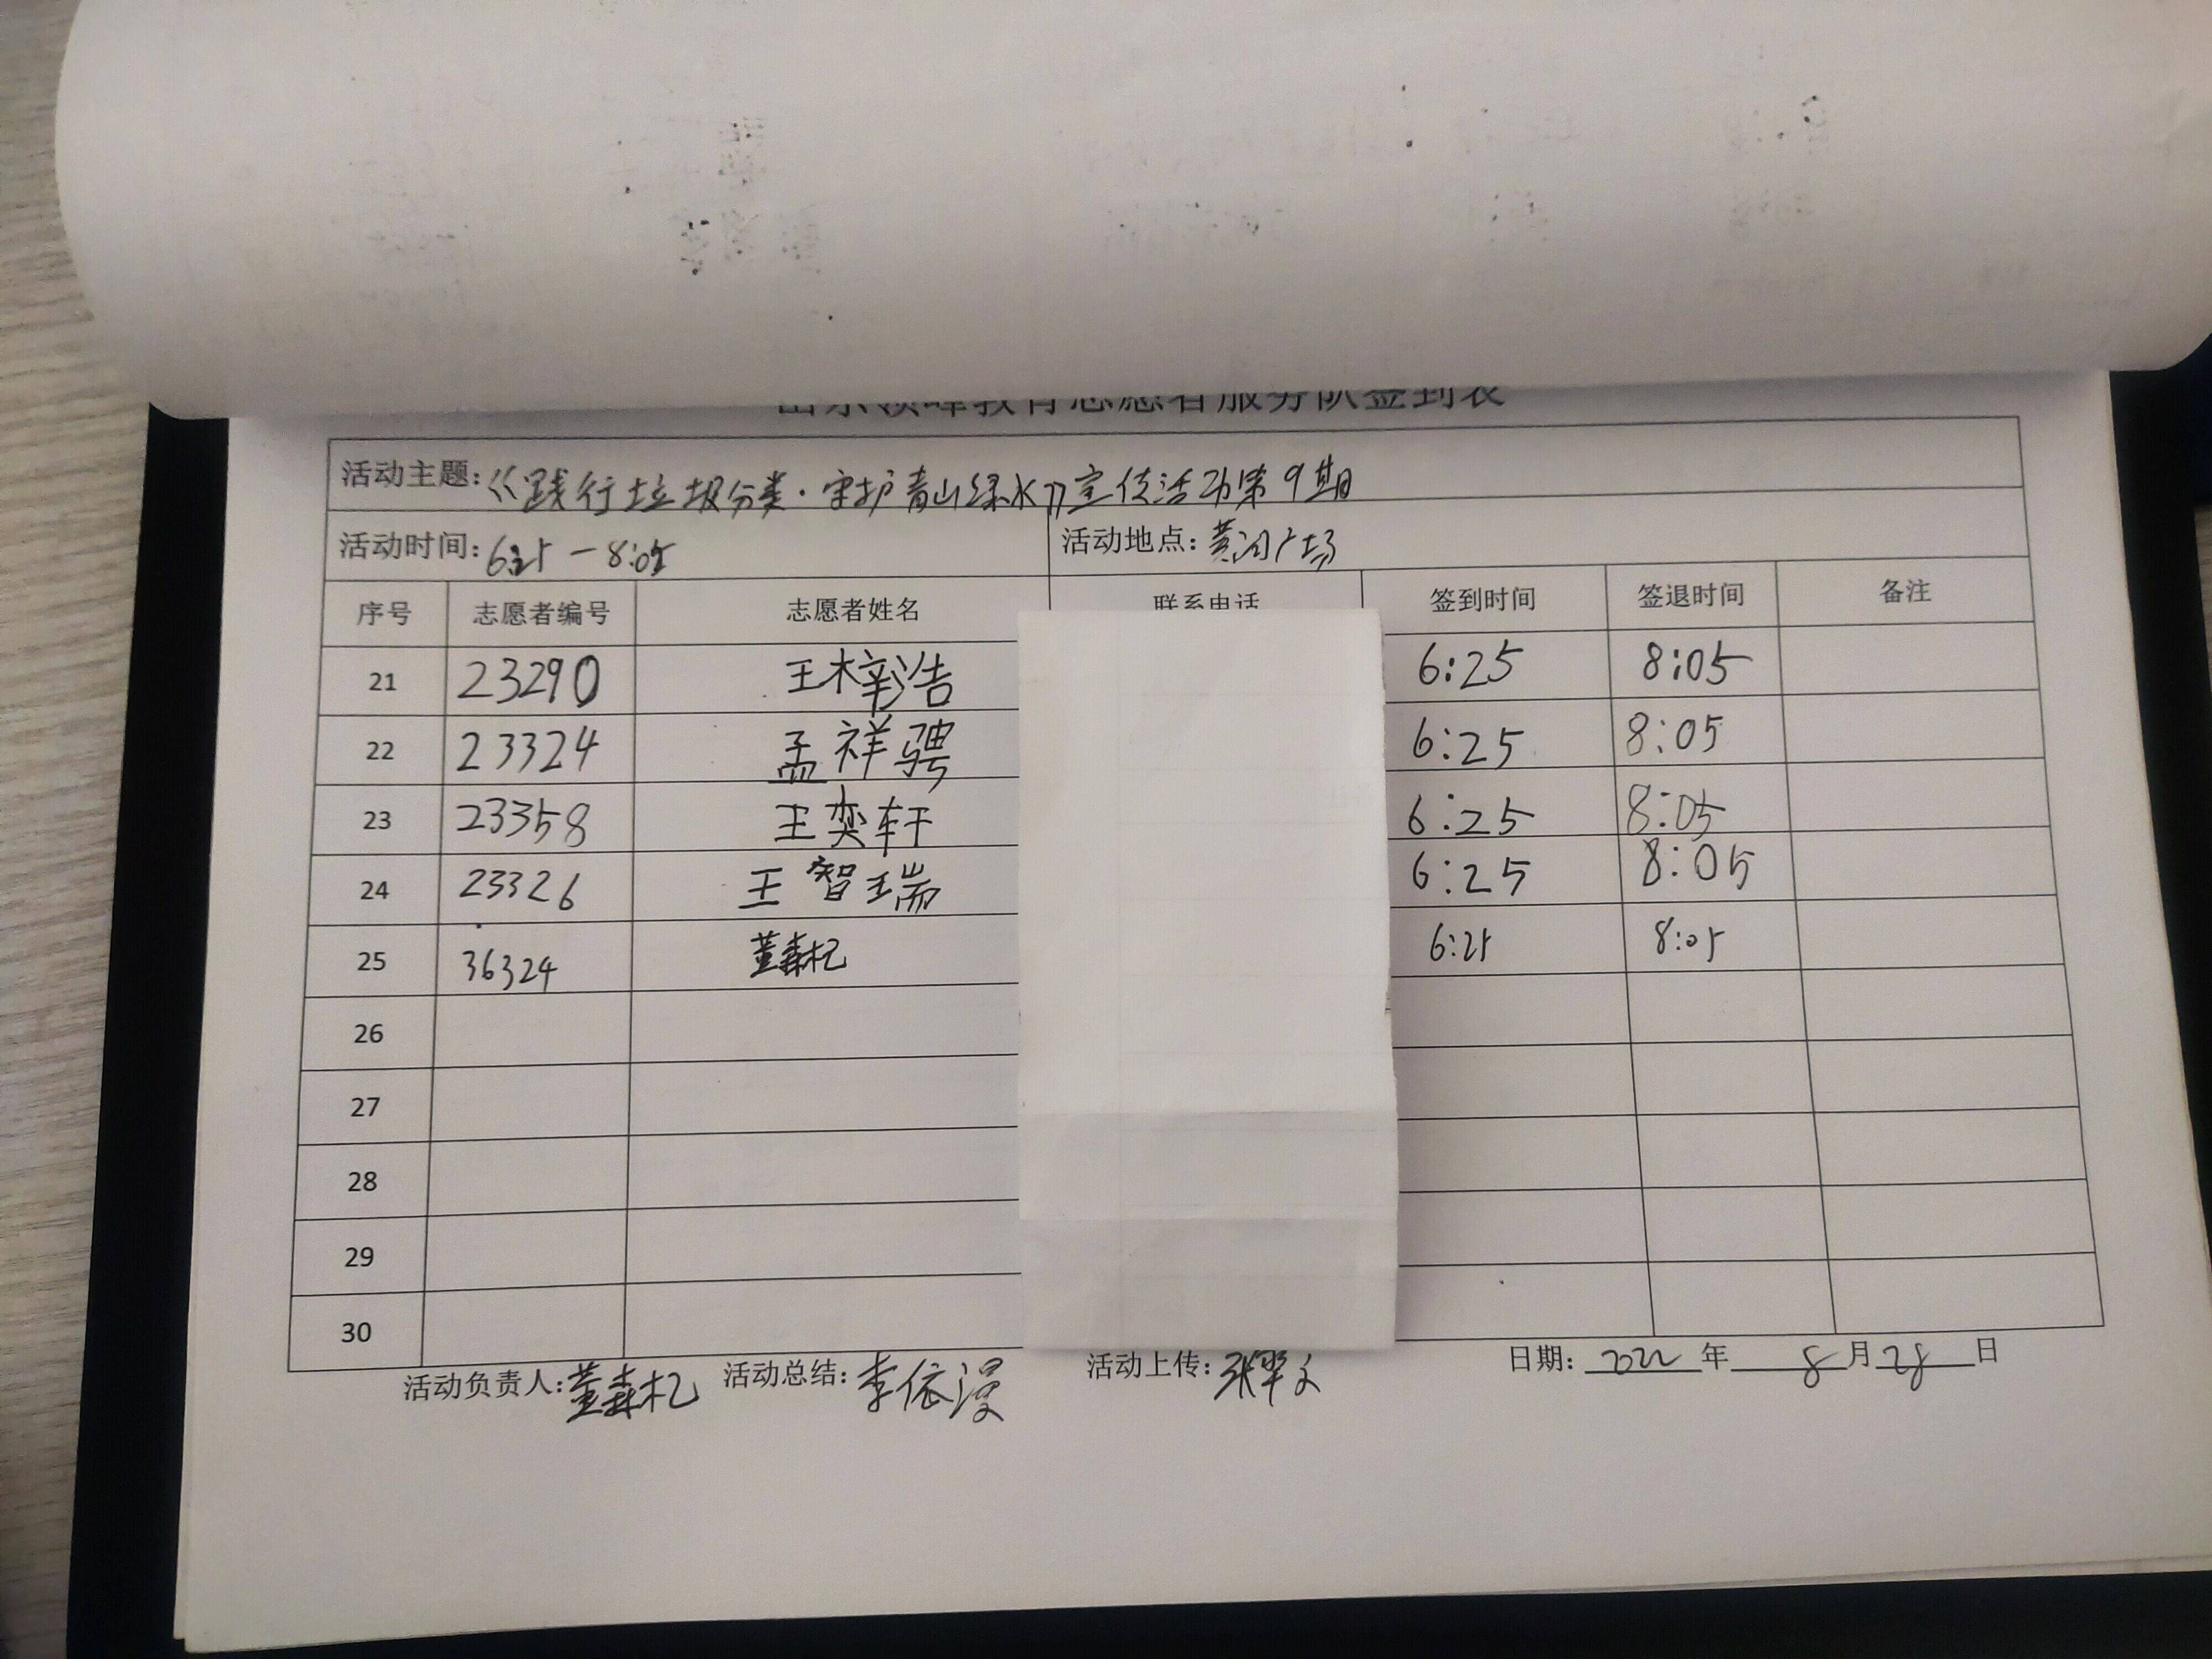 山东领峰教育志愿者服务队签到表
活动主题:《践行垃圾分类·守护青山绿水》宣传活动第9期
活动时间:6:25-8:05 活动地点:黄河广场
序号 志愿者编号 志愿者姓名 联系电话 签到时间 签退时间 备注
21 23290 王梓浩 6:25 8:05
22 23324 孟祥骋 6:25 8:05
23 23358 王奕轩 6:25 8:05
24 23326 王智瑞 6:25 8:05
25 36324 董森杞 6:25 8:05
26
27
28
29
30
活动负责人:董森杞 活动总结:李依漫 活动上传:张翠文 日期:2022年8月28日